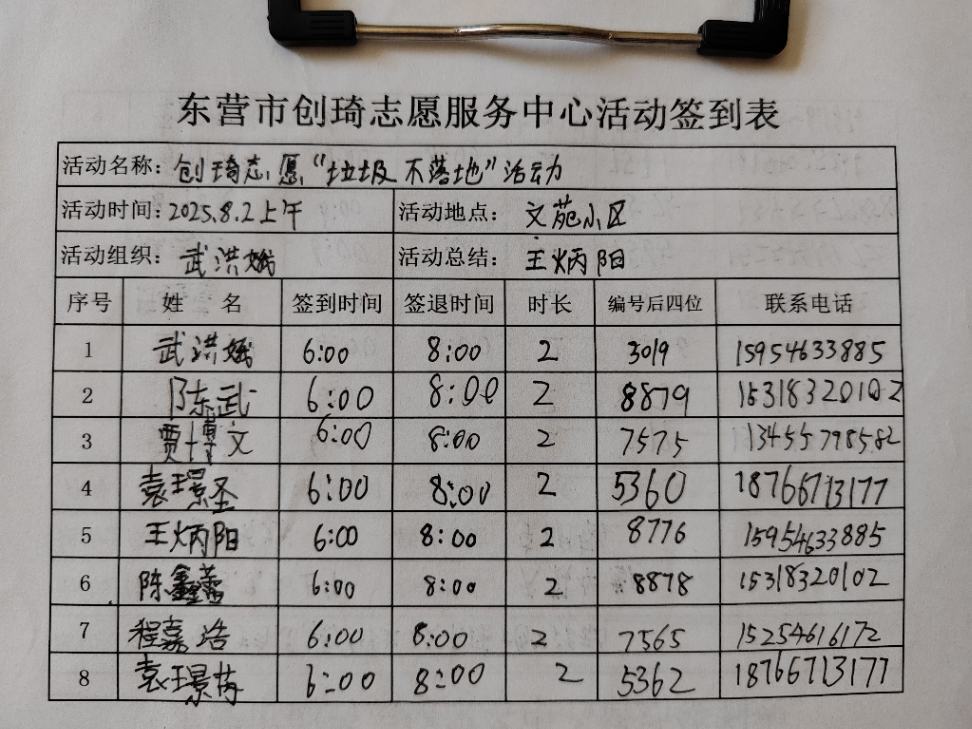 东营市创琦志愿服务中心活动签到表
活动名称: 创琦志愿“垃圾不落地”活动
活动时间: 2025.8.2上午 活动地点: 文苑小区
活动组织: 武洪娥 活动总结: 王炳阳
序号 姓 名 签到时间 签退时间 时长 编号后四位 联系电话
1 武洪娥 6:00 8:00 2 3019 15954633885
2 陈武 6:00 8:00 2 8879 15318320102
3 贾博文 6:00 8:00 2 7575 13455798582
4 袁璟圣 6:00 8:00 2 5360 18766713177
5 王炳阳 6:00 8:00 2 8776 15954633885
6 陈鑫蕾 6:00 8:00 2 8878 15318320102
7 程嘉浩 6:00 8:00 2 7565 15254616172
8 袁璟 6:00 8:00 2 5362 18766713177